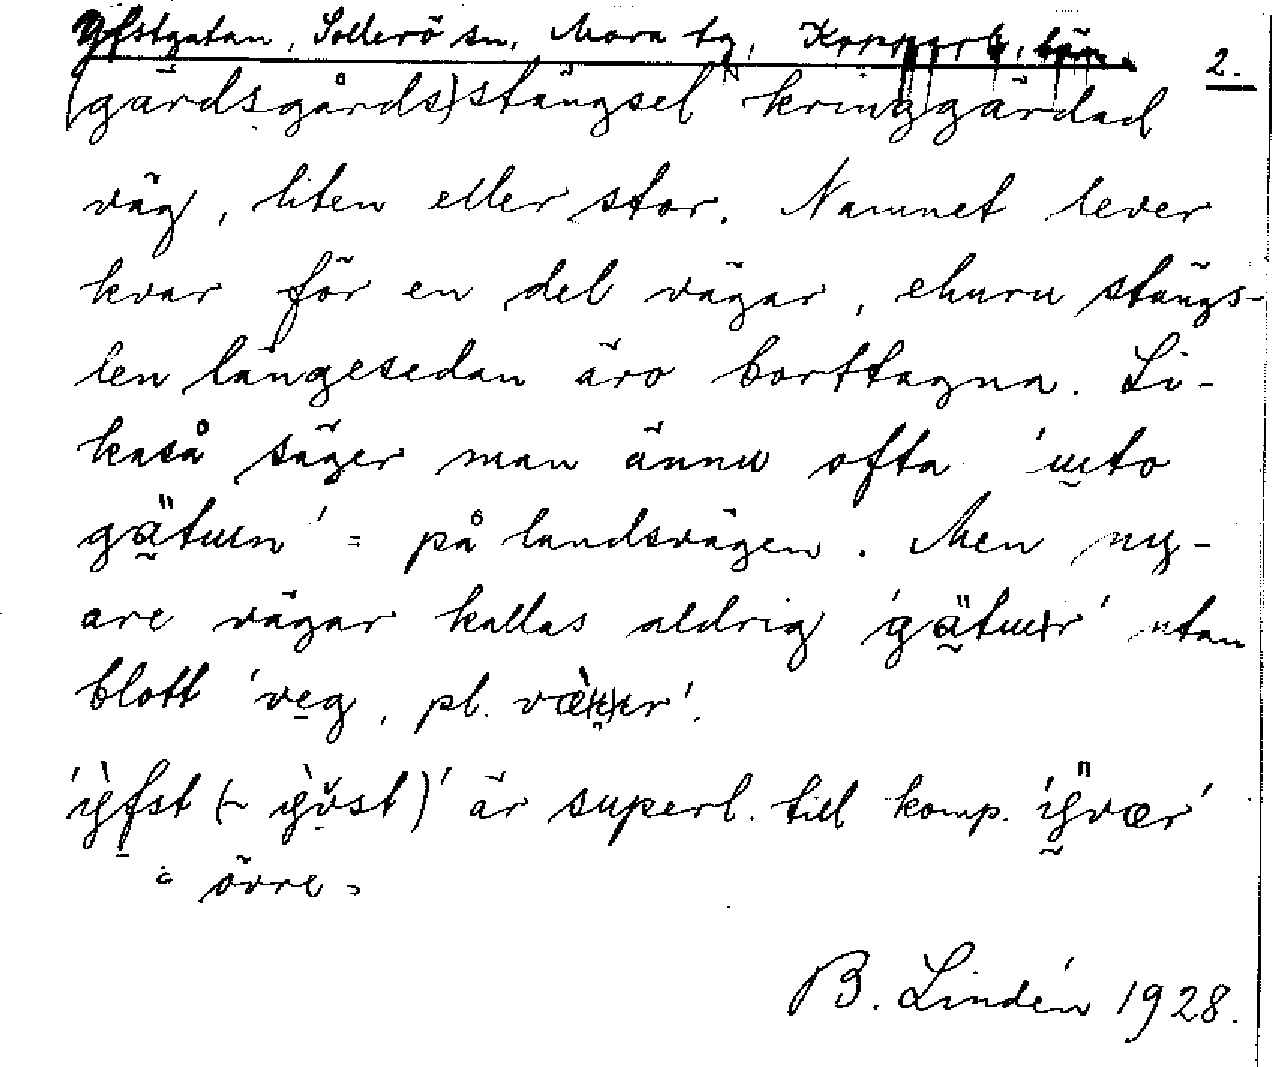 Yfstgatan, Sollerö sn, Mora tg, Kopparb. län. 2.
(gärdsgårds)stängsel kringgärdad
väg, liten eller stor. Namnet lever
kvar för en del vägar, ehuru stängs-
len längesedan äro borttagna. Li-
kaså säger man ännu ofta 'uto
gätun' = på landsvägen. Men ny-
are vägar kallas aldrig 'gätur' utan
blott 'veg, pl.
är superl. till komp.
= övre.
B. Lindén 1928.